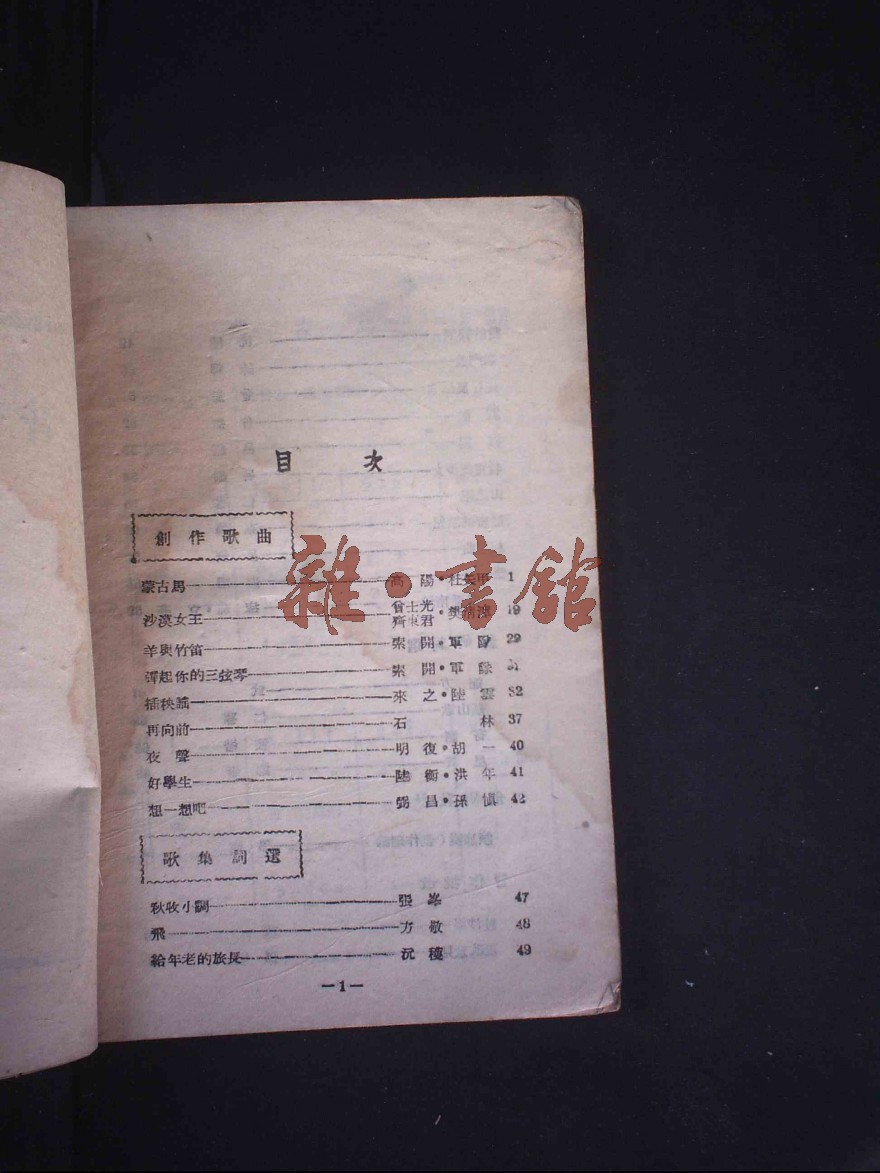 目 次
創作歌曲
蒙古馬 高陽・杜矢甲 1
沙漠女王 曾士光 齊東君・樊 19
羊與竹笛 索開・軍 29
彈起你的三弦琴 索開・軍
插秧謠 來之・陸雲 32
再向前 石林 37
夜聲 明復・胡一 40
好學生 陸衡・洪年 41
想一想吧 昌・孫愼 42
歌集詞選
秋收小調 張峯 47
飛 方敬 48
給年老的旅長 沉穗 49
—1—
雜・書館